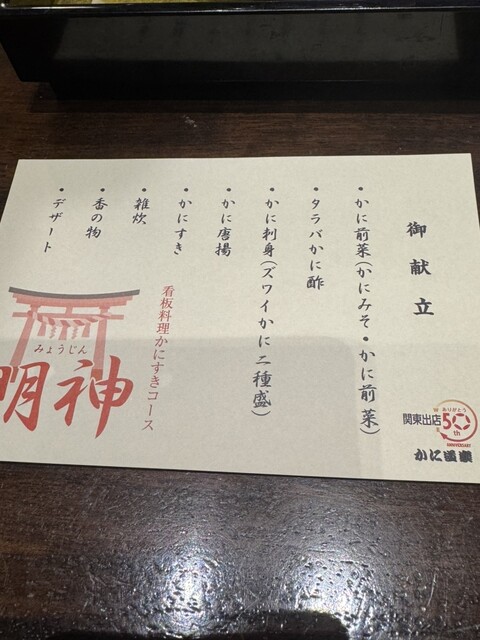 御献立
・かに前菜(かにみそ・かに前菜)
・タラバかに酢
・かに刺身(ズワイかに二種盛)
・かに唐揚
・かにすき
・雑炊
・香の物
・デザート
看板料理かにすきコース
みょうじん
明神
関東出店
ありがとう
50th
ANNIVERSARY
かに道楽